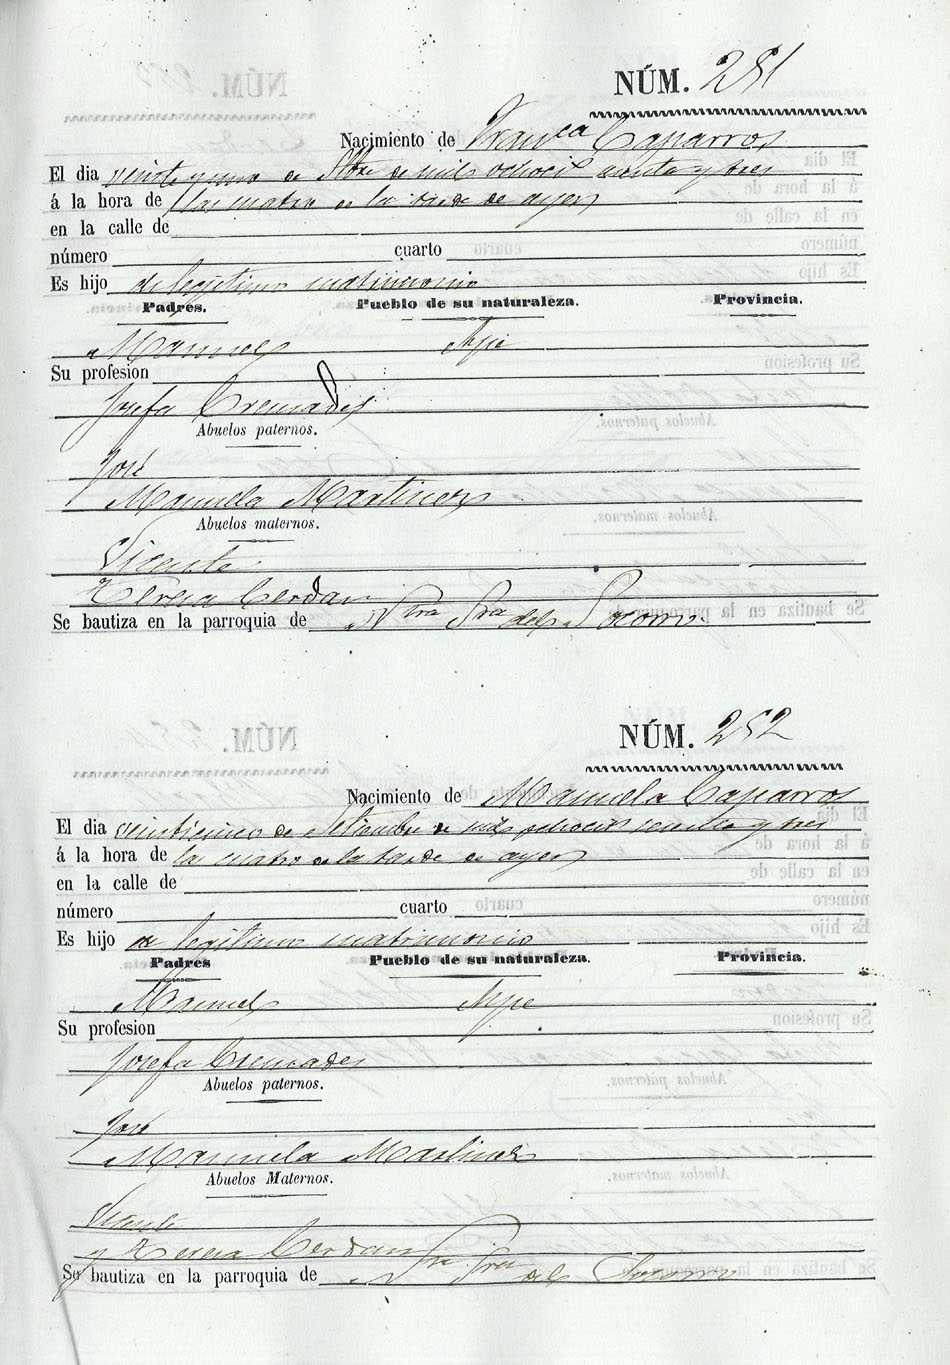 NÚM. 251
Nacimiento de Fran.ca Caparros
El dia veinte y uno de Stbre de mil ochoc.s sesenta y tres
á la hora de las cuatro de la tarde de ayer
en la calle de
número cuarto
Es hijo de legitimo matrimonio
Padres. Pueblo de su naturaleza. Provincia.
Manuel Aspe
Su profesion
Josefa Cremades
Abuelos paternos.
José
Manuela Martinez
Abuelos maternos.
Vicente
Teresa Cerdan
Se bautiza en la parroquia de Ntra Sra del Socorro
NÚM. 252
Nacimiento de Manuela Caparros
El dia veinticinco de Setiembre de mil ochocis sesenta y tres
á la hora de la cuatro de la tarde de ayer
en la calle de
número cuarto
Es hijo de legitimo matrimonio
Padres Pueblo de su naturaleza. Provincia.
Manuel Aspe
Su profesion
Josefa Cremades
Abuelos paternos.
José
Manuela Martinez
Abuelos Maternos.
Vicente
y Teresa Cerdan
Se bautiza en la parroquia de Ntra Sra del Socorro